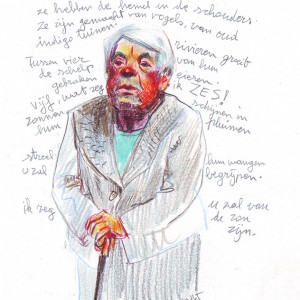 ze hebben de hemel in de schouders.
Ze zijn gemaakt van vogels, van oud
indigo tuinen. rivieren groeit
Tussen vier van hun
de schelp
gebroken
vijf, wat zeg ik ZES!
zonnen schijnen in
hun pluimen
streel hun wangen
u zal begrijpen.
ik zeg u zal van
de zon
zijn.